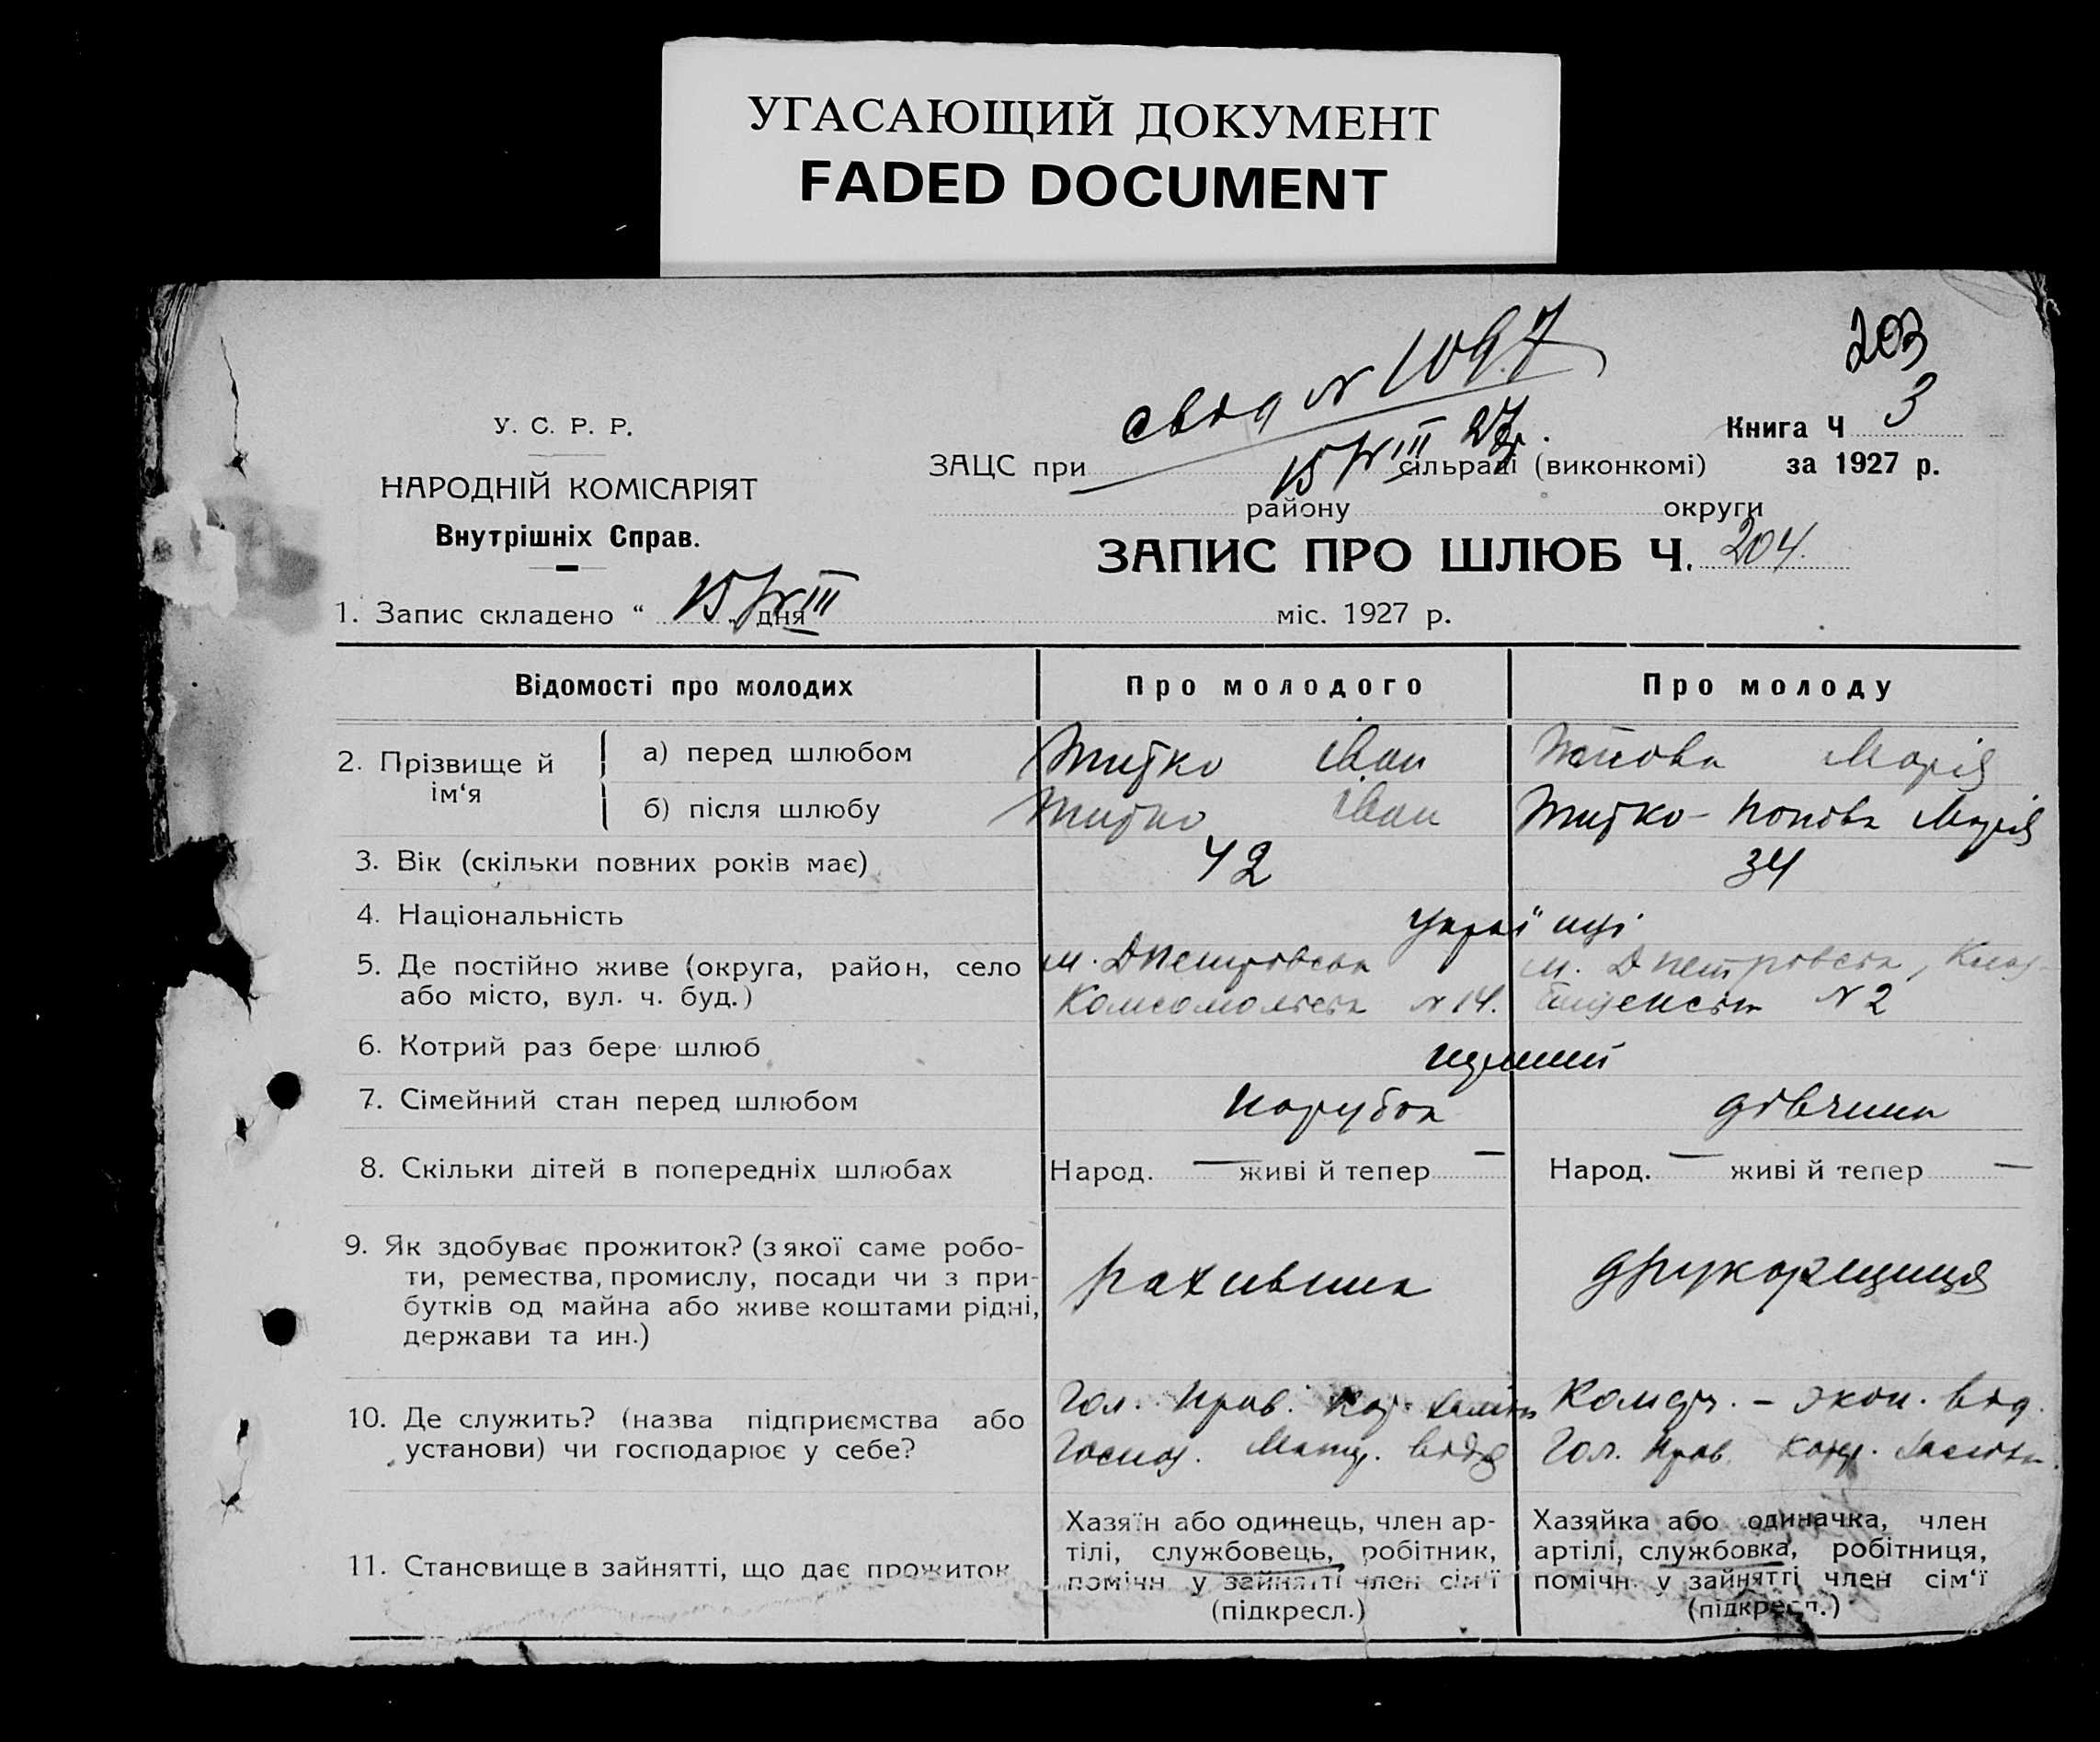 УГАСАЮЩИЙ ДОКУМЕНТ
FADED DOCUMENT
203
свід N 1097
15/VIII 27р.
У. С. Р. Р.
НАРОДНІЙ КОМІСАРІЯТ
Внутрішніх Справ.
Книга Ч 3
за 1927 р.
ЗАЦС при сільраді (виконкомі)
району округи
ЗАПИС ПРО ШЛЮБ Ч. 204.
1. Запис складено “ 15/VIII дня міс. 1927 р.
Відомості про молодих Про молодого Про молоду
2. Прізвище й ім‘я
а) перед шлюбом Іван Попова Марія
б) після шлюбу Іван Попова Марія
3. Вік (скільки повних років має) 42 34
4. Національність Українці
5. Де постійно живе (округа, район, село м. Дпетровськ м. Дпетровськ,
або місто, вул. ч. буд.) Комсомольск N 14. N 2
6. Котрий раз бере шлюб перший
7. Сімейний стан перед шлюбом парубок дівчина
8. Скільки дітей в попередніх шлюбах Народ. — живі й тепер — Народ. — живі й тепер —
9. Як здобуває прожиток? (з якої саме робо-
ти, ремества, промислу, посади чи з при-
бутків од майна або живе коштами рідні,
держави та ин.)
друкарщиця
10. Де служить? (назва підприємства або
установи) чи господарює у себе?
Гол. Прав.
Госпо. Мат.
екон. від.
Гол. Прав.
11. Становище в зайнятті, що дає прожиток
Хазяїн або одинець, член ар-
тілі, службовець, робітник,
помічн у зайнятті член сім‘ї
(підкресл.)
Хазяйка або одиначка, член
артілі, службовка, робітниця,
помічн. у зайнятті член сім‘ї
(підкресл.)